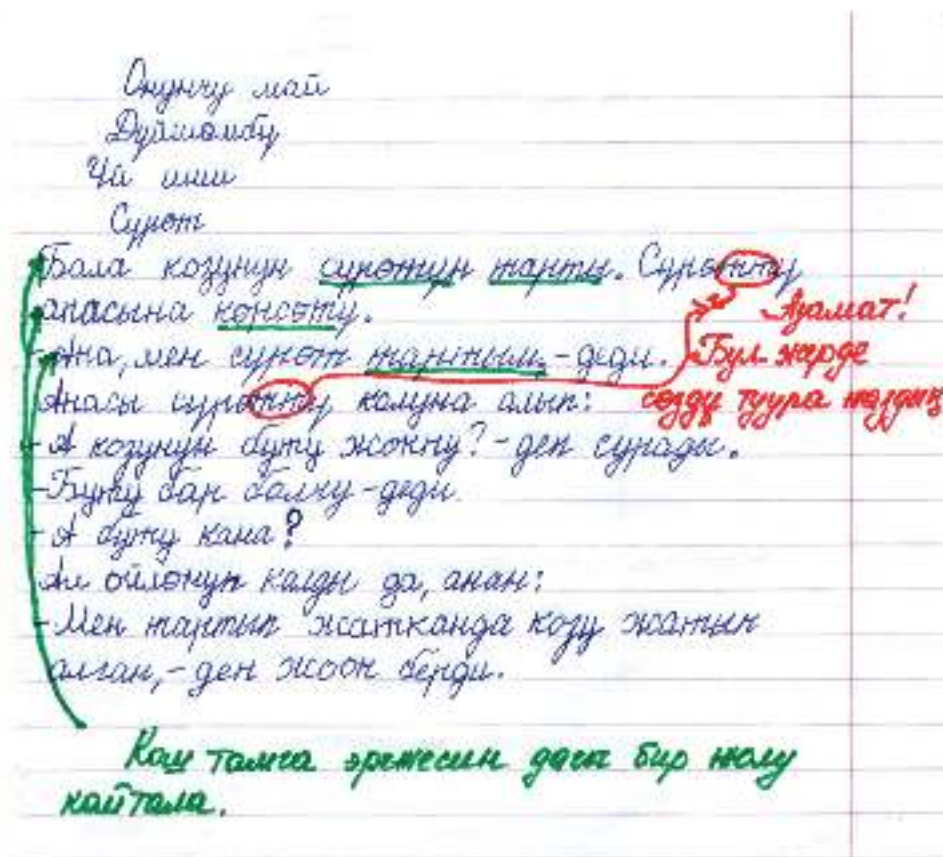 Онунчу май
Дүйшөмбү
Үй иши
Сүрөт
Бала козунун сүрөтүн тарты. Сүрөттү
апасына көрсөтү.
- Апа, мен сүрөт тарттым - деди.
Апасы сүрөттү колуна алып:
- А козунун буту жокпу? - деп сурады.
- Буту бар болчу - деди
- А буту кана?
Ал ойлонуп калды да, анан:
- Мен тартып жатканда козу жатып
алган, - деп жооп берди.
Азамат!
Бул жерде
сөздү туура таптың
Каш тамга эрежесин дагы бир жолу
кайтала.